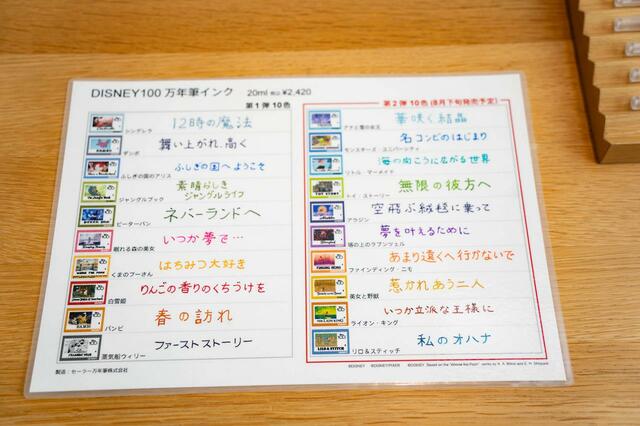 DISNEY100 万年筆インク 20ml 税込 ¥2,420
第1弾 10色
12時の魔法
シンデレラ
舞い上がれ、高く
ダンボ
ふしぎの国へようこそ
ふしぎの国のアリス
素晴らしき
ジャングルライフ
ジャングルブック
ネバーランドへ
ピーターパン
いつか夢で…
眠れる森の美女
はちみつ大好き
くまのプーさん
りんごの香りのくちづけを
白雪姫
春の訪れ
バンビ
ファーストストーリー
蒸気船ウィリー
製造:セーラー万年筆株式会社
第2弾 10色 (8月下旬発売予定)
華咲く結晶
アナと雪の女王
名コンビのはじまり
モンスターズ・ユニバーシティ
海の向こうに広がる世界
リトル・マーメイド
無限の彼方へ
トイ・ストーリー
空飛ぶ絨毯に乗って
アラジン
夢を叶えるために
塔の上のラプンツェル
あまり遠くへ行かないで
ファインディング・ニモ
惹かれあう二人
美女と野獣
いつか立派な王様に
ライオン・キング
私のオハナ
リロ&スティッチ
©DISNEY ©DISNEY/PIXAR ©DISNEY. Based on the "Winnie the Pooh" works by A. A. Milne and E. H. Shepard.